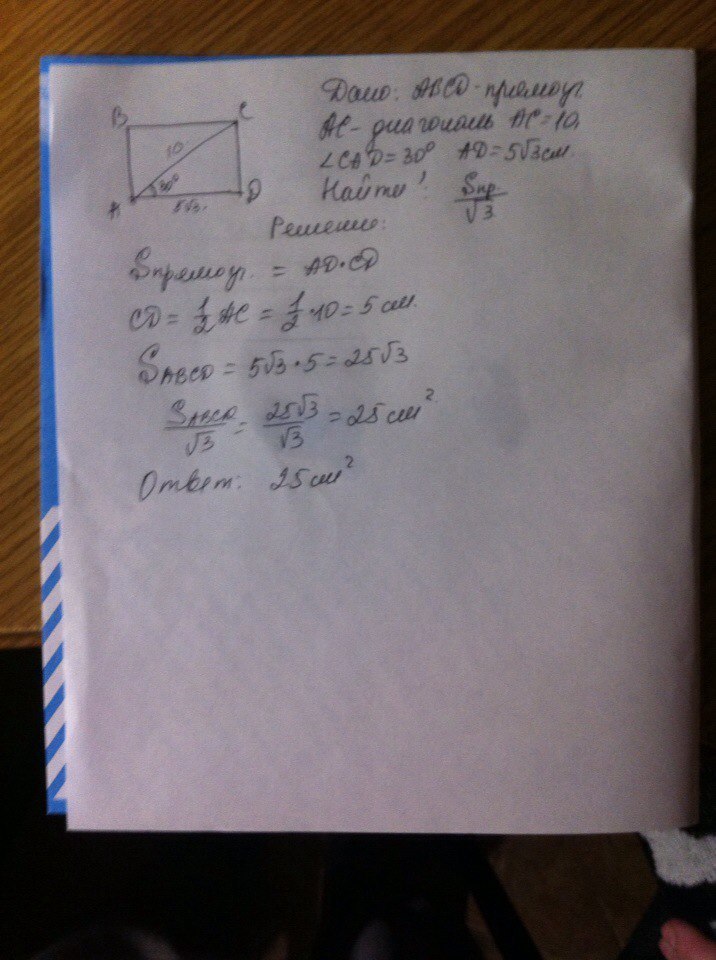 B C
10
30°
A 5√3. D
Дано: ABCD - прямоуг.
AC - диагональ AC = 10,
∠CAD = 30° AD = 5√3 см.
Найти: Sпр/√3
Решение:
Sпрямоуг. = AD · CD
CD = 1/2 AC = 1/2 · 10 = 5 см.
SABCD = 5√3 · 5 = 25√3
SABCD/√3 = 25√3/√3 = 25 см².
Ответ: 25 см²